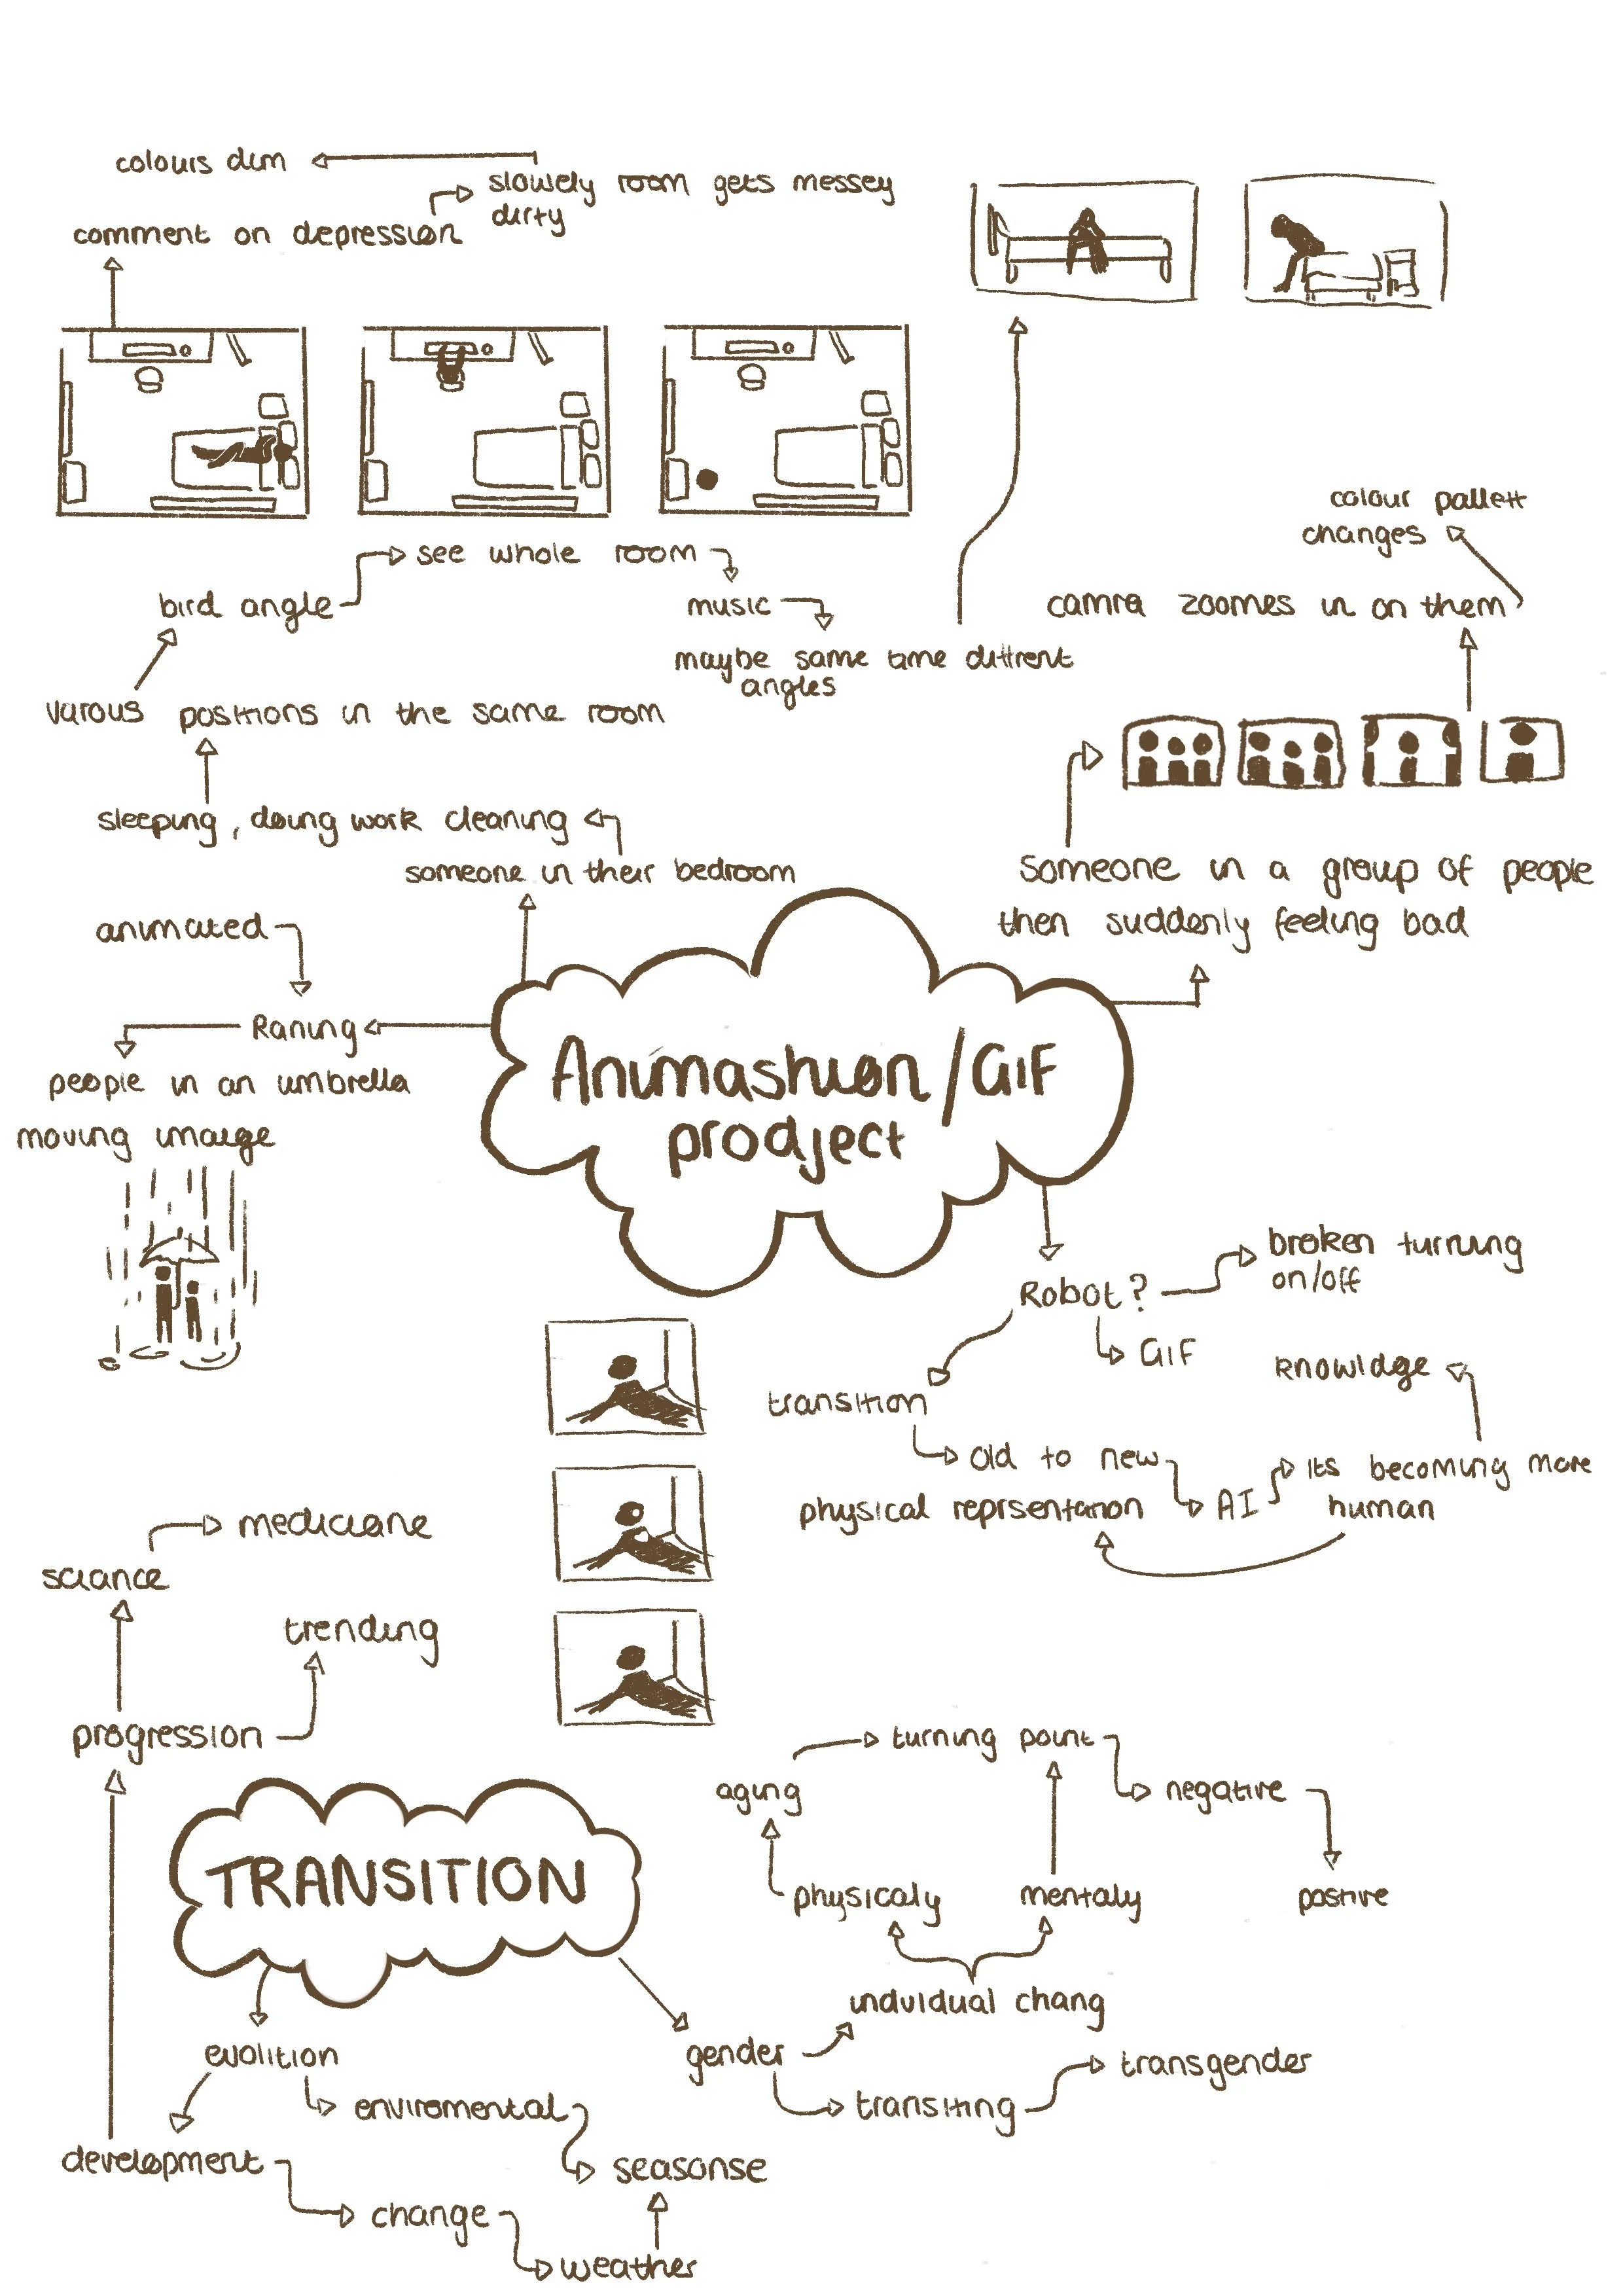 colours dim
slowely room gets messey
dirty
comment on depression
see whole room
bird angle
music
maybe same time diffrent
angles
varous positions in the same room
sleeping, doing work cleaning
someone in their bedroom
colour pallett
changes
camra zoomes in on them
someone in a group of people
then suddenly feeling bad
animated
Raning
people in an umbrella
moving imaege
Animashion/GIF
prodject
Robot?
broken turning
on/off
GIF
knowldge
transition
old to new
AI
its becoming more
human
physical reprsentation
mediciane
sciance
trending
progression
TRANSITION
turning point
aging
negative
physicaly
mentaly
postive
indvidual chang
evolition
gender
transgender
enviromental
transiting
development
seasonse
change
weather